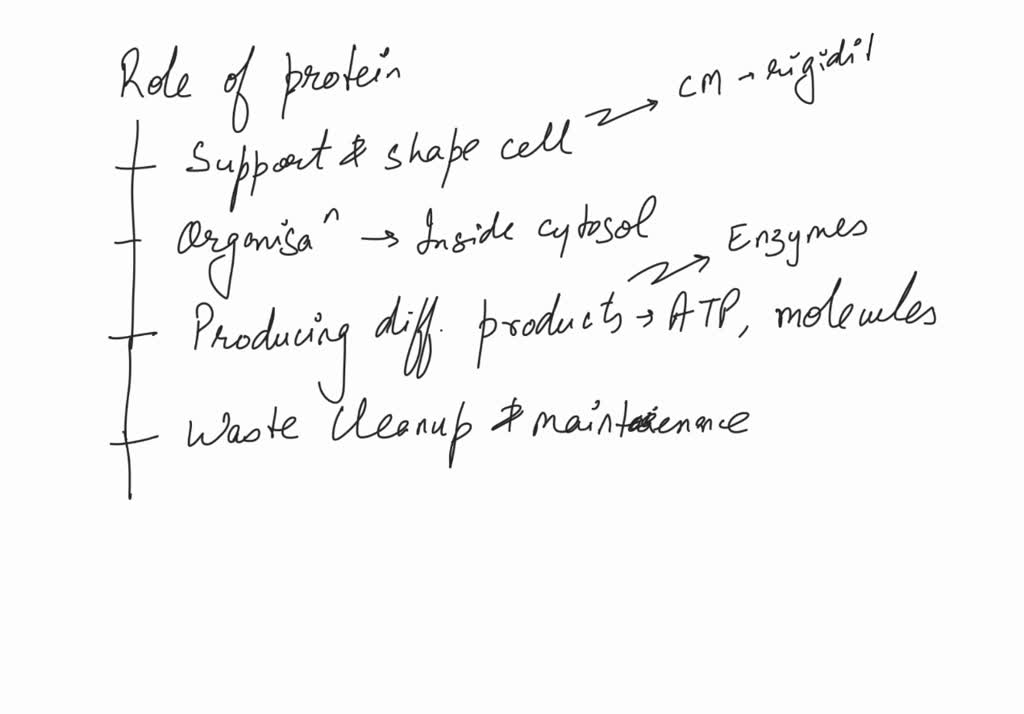 Role of protein
Support & shape cell → CM → rigidit
Organisaⁿ → Inside cytosol
Enzymes
Producing diff. products → ATP, molecules
Waste cleanup & maintenance